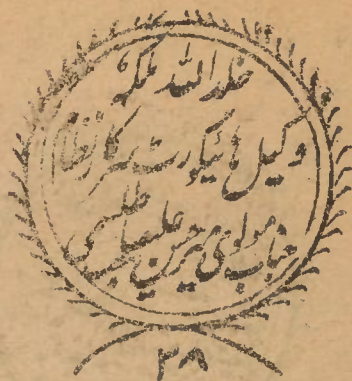 خلد اللہ ملکہٗ
وکیل ہائیکورٹ سرکار نظام
جناب مولوی میر حسن علیصاحب
۳۸